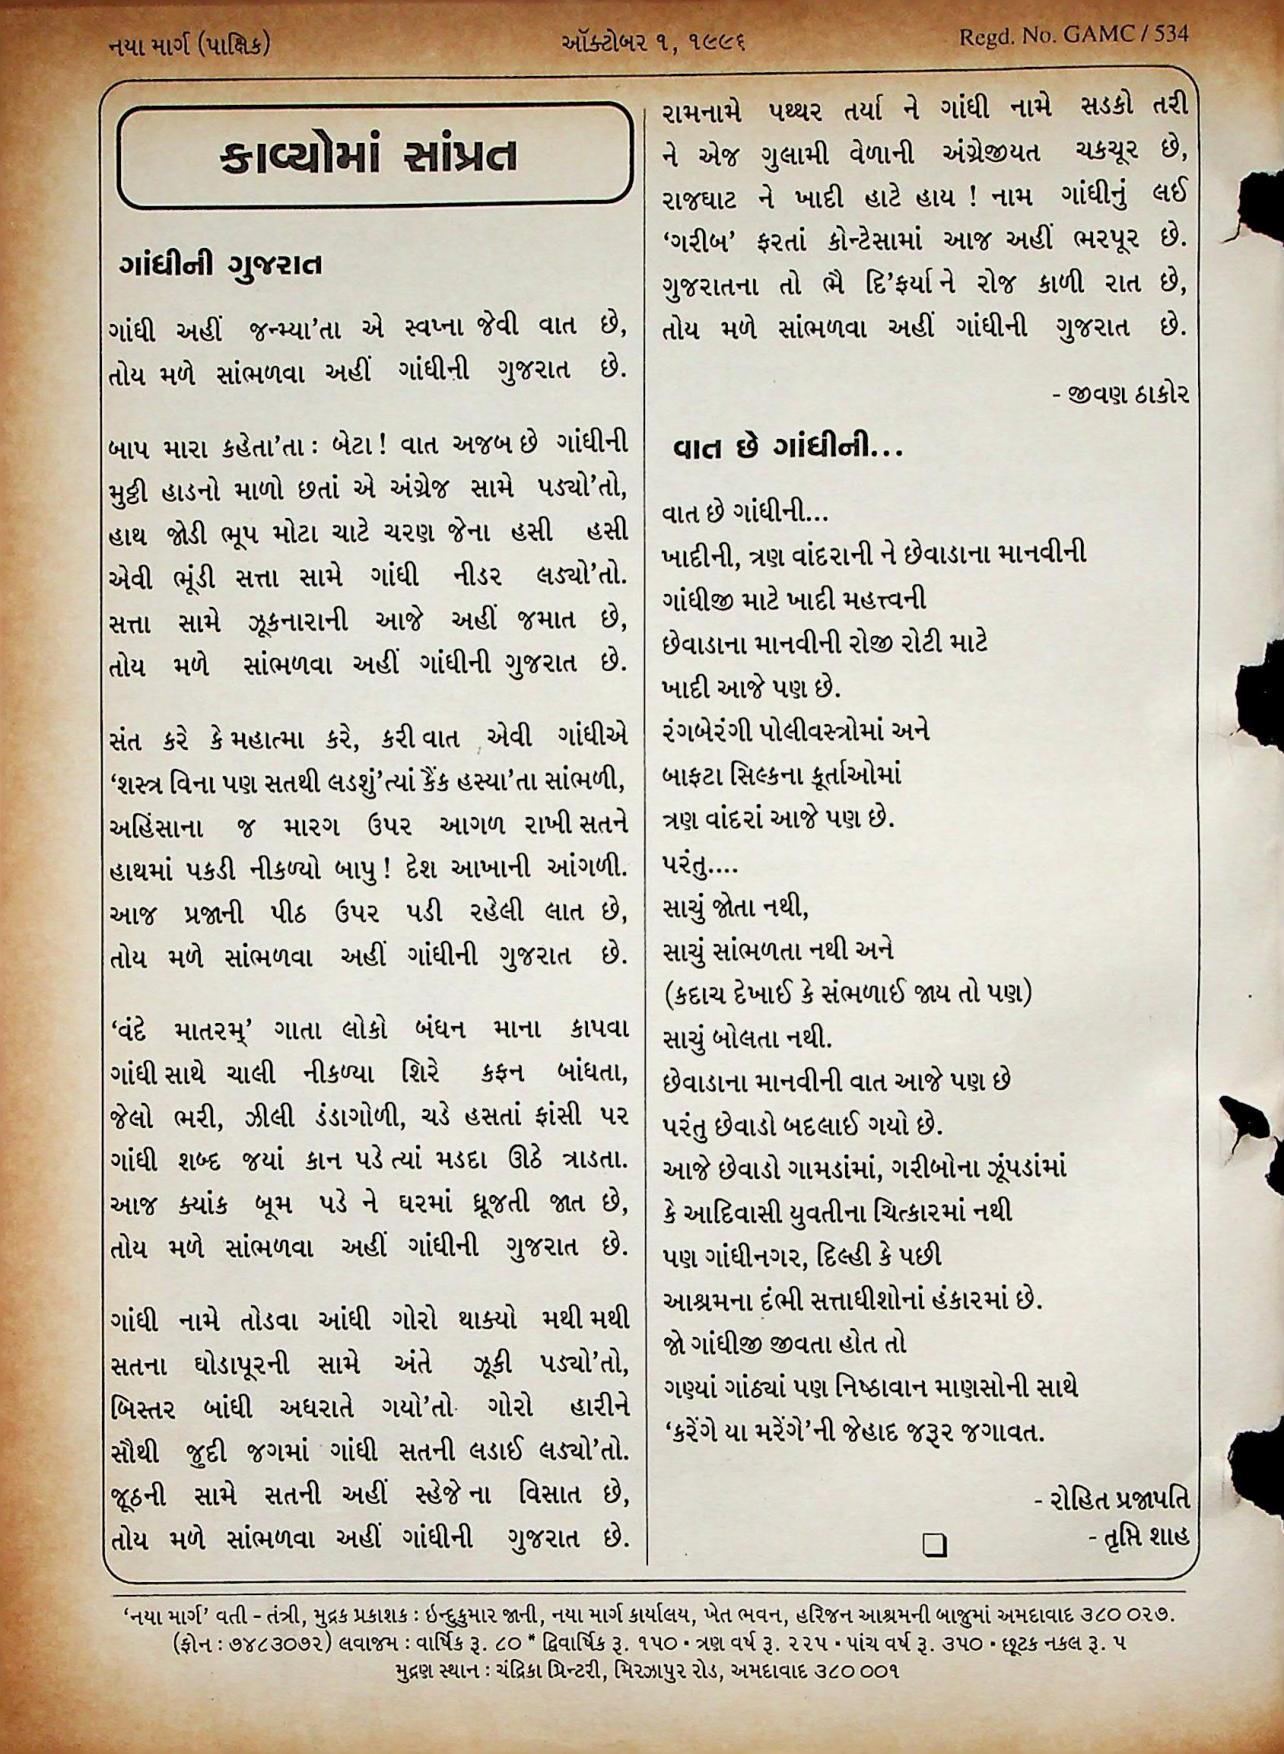 નયા માર્ગ (પાક્ષિક)
ઑક્ટોબર ૧, ૧૯૯૬
Regd. No. GAMC / 534
કાવ્યોમાં સાંપ્રત
ગાંધીની ગુજરાત
ગાંધી અહીં જન્મ્યા'તા એ સ્વપ્ના જેવી વાત છે,
તોય મળે સાંભળવા અહીં ગાંધીની ગુજરાત છે.
બાપ મારા કહેતા'તા : બેટા ! વાત અજબ છે ગાંધીની
મુઠ્ઠી હાડનો માળો છતાં એ અંગ્રેજ સામે પડ્યો'તો,
હાથ જોડી ભૂપ મોટા ચાટે ચરણ જેના હસી હસી
એવી ભૂંડી સત્તા સામે ગાંધી નીડર લડ્યો'તો.
સત્તા સામે ઝૂકનારાની આજે અહીં જમાત છે,
તોય મળે સાંભળવા અહીં ગાંધીની ગુજરાત છે.
સંત કરે કે મહાત્મા કરે, કરી વાત એવી ગાંધીએ
‘શસ્ત્ર વિના પણ સતથી લડશું’ત્યાં કૈંક હસ્યા'તા સાંભળી,
અહિંસાના જ મારગ ઉપર આગળ રાખી સતને
હાથમાં પકડી નીકળ્યો બાપુ ! દેશ આખાની આંગળી.
આજ પ્રજાની પીઠ ઉપર પડી રહેલી લાત છે,
તોય મળે સાંભળવા અહીં ગાંધીની ગુજરાત છે.
‘વંદે માતરમ્’ ગાતા લોકો બંધન માના કાપવા
ગાંધી સાથે ચાલી નીકળ્યા શિરે કફન બાંધતા,
જેલો ભરી, ઝીલી ડંડાગોળી, ચડે હસતાં ફાંસી પર
ગાંધી શબ્દ જયાં કાન પડે ત્યાં મડદા ઊઠે ત્રાડતા.
આજ ક્યાંક બૂમ પડે ને ઘરમાં ધ્રૂજતી જાત છે,
તોય મળે સાંભળવા અહીં ગાંધીની ગુજરાત છે.
ગાંધી નામે તોડવા આંધી ગોરો થાક્યો મથી મથી
સતના ઘોડાપૂરની સામે અંતે ઝૂકી પડ્યો'તો,
બિસ્તર બાંધી અધરાતે ગયો'તો ગોરો હારીને
સૌથી જુદી જગમાં ગાંધી સતની લડાઈ લડ્યો'તો.
જૂઠની સામે સતની અહીં સ્હેજે ના વિસાત છે,
તોય મળે સાંભળવા અહીં ગાંધીની ગુજરાત છે.
રામનામે પથ્થર તર્યા ને ગાંધી નામે સડકો તરી
ને એજ ગુલામી વેળાની અંગ્રેજીયત ચકચૂર છે,
રાજઘાટ ને ખાદી હાટે હાય ! નામ ગાંધીનું લઈ
‘ગરીબ’ ફરતાં કોન્ટેસામાં આજ અહીં ભરપૂર છે.
ગુજરાતના તો ભૈ દિ'ફર્યા ને રોજ કાળી રાત છે,
તોય મળે સાંભળવા અહીં ગાંધીની ગુજરાત છે.
- જીવણ ઠાકોર
વાત છે ગાંધીની...
વાત છે ગાંધીની...
ખાદીની, ત્રણ વાંદરાની ને છેવાડાના માનવીની
ગાંધીજી માટે ખાદી મહત્ત્વની
છેવાડાના માનવીની રોજી રોટી માટે
ખાદી આજે પણ છે.
રંગબેરંગી પોલીવસ્ત્રોમાં અને
બાફટા સિલ્કના કૂર્તાઓમાં
ત્રણ વાંદરાં આજે પણ છે.
પરંતુ....
સાચું જોતા નથી,
સાચું સાંભળતા નથી અને
(કદાચ દેખાઈ કે સંભળાઈ જાય તો પણ)
સાચું બોલતા નથી.
છેવાડાના માનવીની વાત આજે પણ છે
પરંતુ છેવાડો બદલાઈ ગયો છે.
આજે છેવાડો ગામડાંમાં, ગરીબોના ઝૂંપડાંમાં
કે આદિવાસી યુવતીના ચિત્કારમાં નથી
પણ ગાંધીનગર, દિલ્હી કે પછી
આશ્રમના દંભી સત્તાધીશોનાં હંકારમાં છે.
જો ગાંધીજી જીવતા હોત તો
ગણ્યાં ગાંઠ્યાં પણ નિષ્ઠાવાન માણસોની સાથે
‘કરેંગે યા મરેંગે’ની જેહાદ જરૂર જગાવત.
- રોહિત પ્રજાપતિ
- તૃપ્તિ શાહ
‘નયા માર્ગ’ વતી – તંત્રી, મુદ્રક પ્રકાશક : ઇન્દુકુમાર જાની, નયા માર્ગ કાર્યાલય, ખેત ભવન, હરિજન આશ્રમની બાજુમાં અમદાવાદ ૩૮૦ ૦૨૭.
(ફોન : ૭૪૮૩૦૭૨) લવાજમ : વાર્ષિક રૂ. ૮૦ * દ્વિવાર્ષિક રૂ. ૧૫૦ • ત્રણ વર્ષ રૂ. ૨૨૫ • પાંચ વર્ષ રૂ. ૩૫૦ • છૂટક નકલ રૂ. ૫
મુદ્રણ સ્થાન : ચંદ્રિકા પ્રિન્ટરી, મિરઝાપુર રોડ, અમદાવાદ ૩૮૦ ૦૦૧